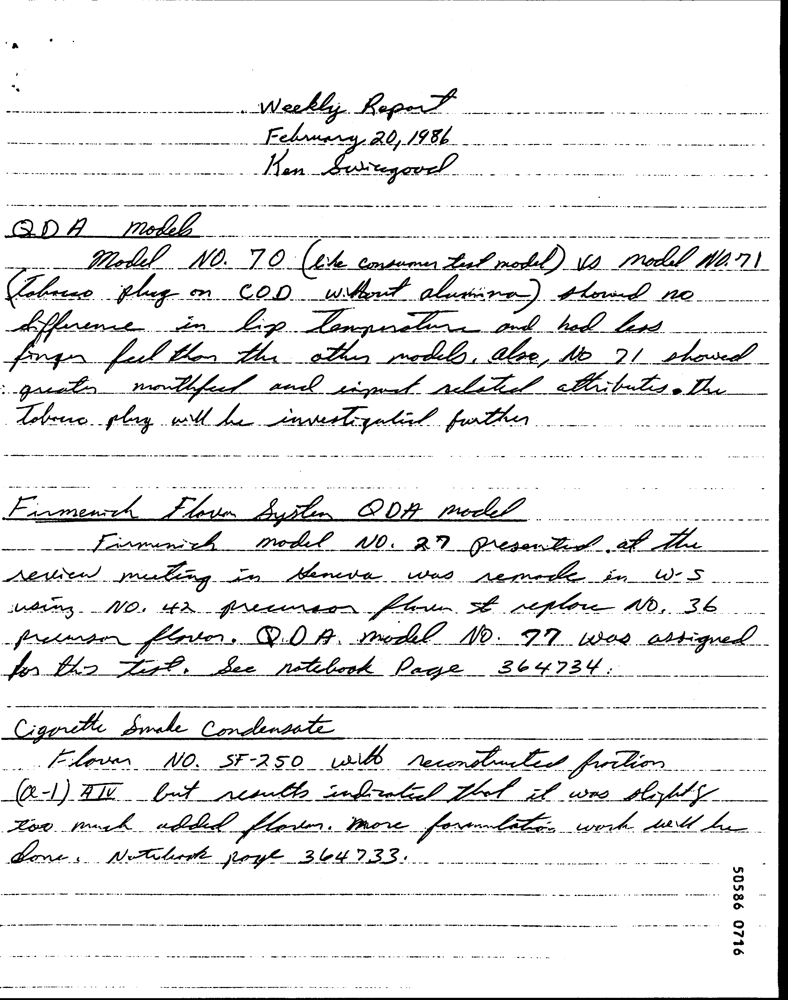 Weekly Report
February 20, 1986
Ken Swicegood
QDA models
Model NO. 70 (like consumer test model) vs model No. 71
(Tobacco plug on COD without alumina) showed no
difference in lip temperature and had less
finger feel than the other models. also, No 71 showed
greater mouthfeel and impact related attributes. The
Tobacco plug will be investigated further
Firmenich Flavor System QDA model
Firmenich model NO. 27 presented at the
review meeting in Geneva was remade in W-S
using NO. 42 precursor flavor to replace NO. 36
precursor flavor. Q.D.A. model NO. 77 was assigned
for this test. See notebook Page 364734.
Cigarette Smoke Condensate
Flavor NO. SF-250 with reconstructed fraction
but results indicated that it was slightly
too much added flavor. More formulation work will be
done. Notebook page 364733.
50586 0716